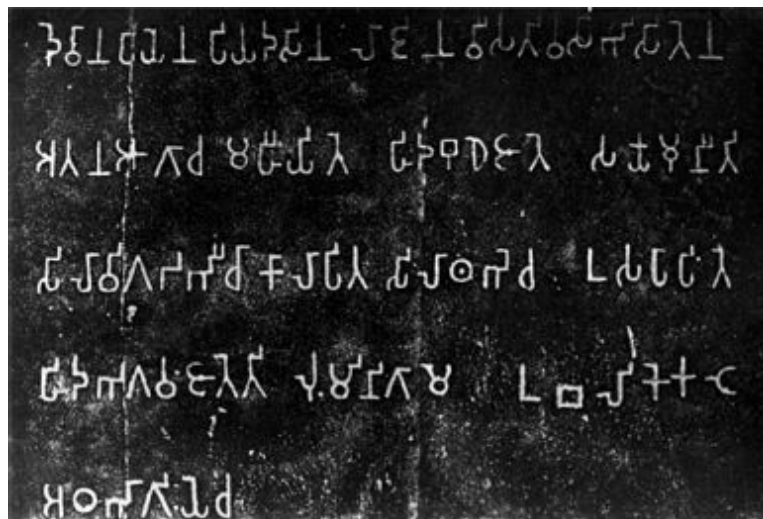 𑀤𑁂𑀯𑀸𑀦𑀧𑀺𑀬𑁂𑀦 𑀧𑀺𑀬𑀤𑀲𑀺𑀦 𑀮𑀸𑀚𑀺𑀦 𑀯𑀻𑀲𑀢𑀺𑀯𑀲𑀸𑀪𑀺𑀲𑀺𑀢𑁂𑀦
𑀅𑀢𑀦 𑀆𑀕𑀸𑀘 𑀫𑀳𑀻𑀬𑀺𑀢𑁂 𑀳𑀺𑀤 𑀩𑀼𑀥𑁂 𑀚𑀸𑀢𑁂 𑀲𑀓𑁆𑀬𑀫𑀼𑀦𑀺𑀢𑀺
𑀲𑀺𑀮𑀸 𑀯𑀺𑀕𑀟𑀪𑀻 𑀘𑀸 𑀓𑀸𑀮𑀸𑀧𑀺𑀢 𑀲𑀺𑀮𑀸𑀣𑀪𑁂 𑀘 𑀉𑀲𑀧𑀸𑀧𑀺𑀢𑁂
𑀳𑀺𑀤 𑀪𑀕𑀯𑀁 𑀚𑀸𑀢𑁂𑀢𑀺 𑀮𑀼𑀁𑀫𑀺𑀦𑀺 𑀕𑀸𑀫𑁂 𑀉𑀩𑀮𑀺𑀓𑁂 𑀓𑀝𑁂
𑀅𑀞𑀪𑀸𑀕𑀺𑀬𑁂 𑀘